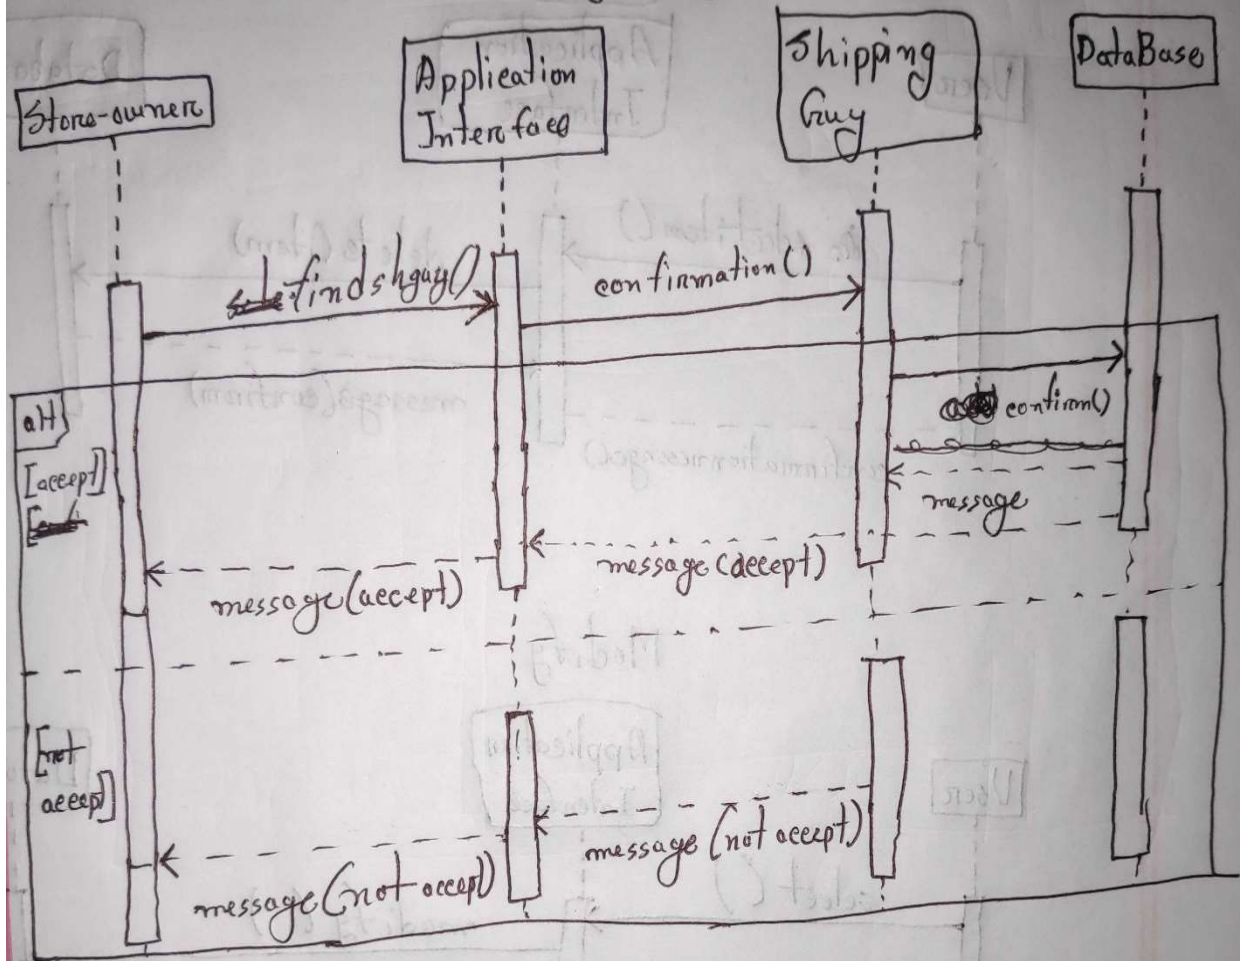 Store-owner
Application
Interface
Shipping
Guy
DataBase
findshguy()
confirmation()
alt
[accept]
confirm()
message
message(accept)
message(accept)
[not
accept]
message(not accept)
message(not accept)